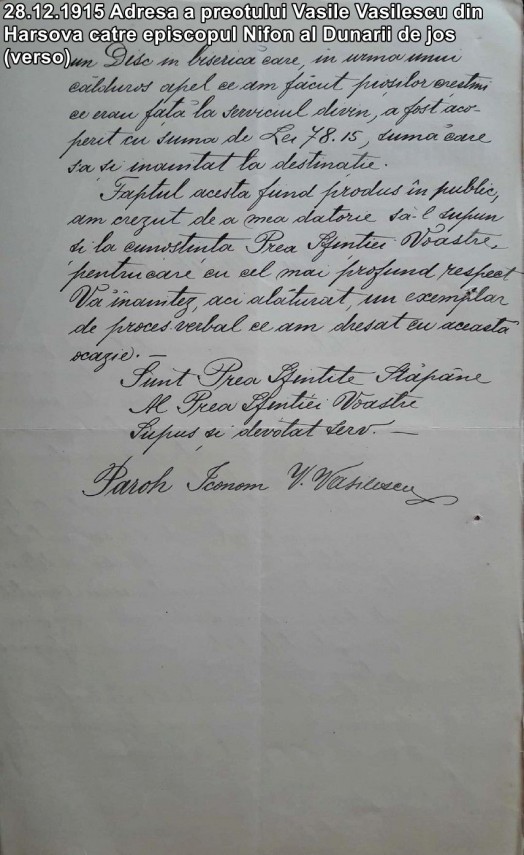 28.12.1915 Adresa a preotului Vasile Vasilescu din
Harsova catre episcopul Nifon al Dunarii de jos
(verso)
un Disc in biserică care, in urma unui
călduros apel ce am făcut pioșilor creștini
ce erau față la serviciul divin, a fost aco-
perit cu suma de Lei 78.15, sumă care
s'a și inaintat la destinație.
Faptul acesta fiind produs în public,
am crezut de a mea datorie să-l supun
și la cunostinta Prea Sfintiei Voastre,
pentru care cu cel mai profund respect
Vă înaintez, aci alăturat, un exemplar
de proces-verbal ce am dresat cu aceasta
ocazie. —
Sunt Prea Sfintite Stăpâne
Al Prea Sfintiei Voastre
Supus și devotat serv. —
Paroh Iconom V. Vasilescu